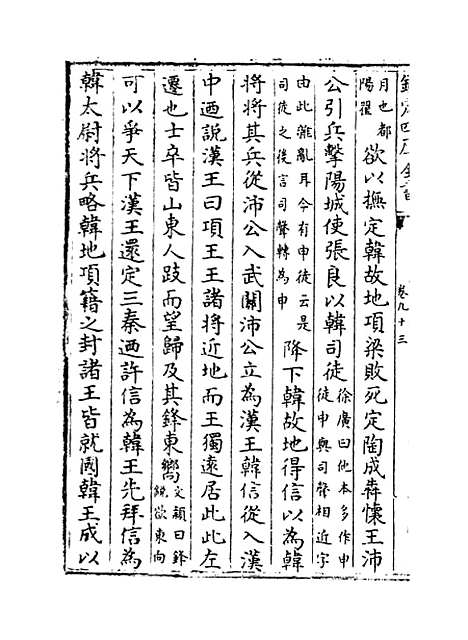 欽定四庫全書
卷九十三
月也都陽翟欲以撫定韓故地項梁敗死定陶成犇懷王沛
公引兵擊陽城使張良以韓司徒徐廣曰他本多作申徒申與司聲相近字
由此雜亂耳今有申徒云是司徒之後言司聲轉為申降下韓故地得信以為韓
將將其兵從沛公入武關沛公立為漢王韓信從入漢
中迺說漢王曰項王王諸將近地而王獨遠居此此左
遷也士卒皆山東人跂而望歸及其鋒東嚮文穎曰鋒銳欲東向
可以爭天下漢王還定三秦迺許信為韓王先拜信為
韓太尉將兵略韓地項籍之封諸王皆就國韓王成以